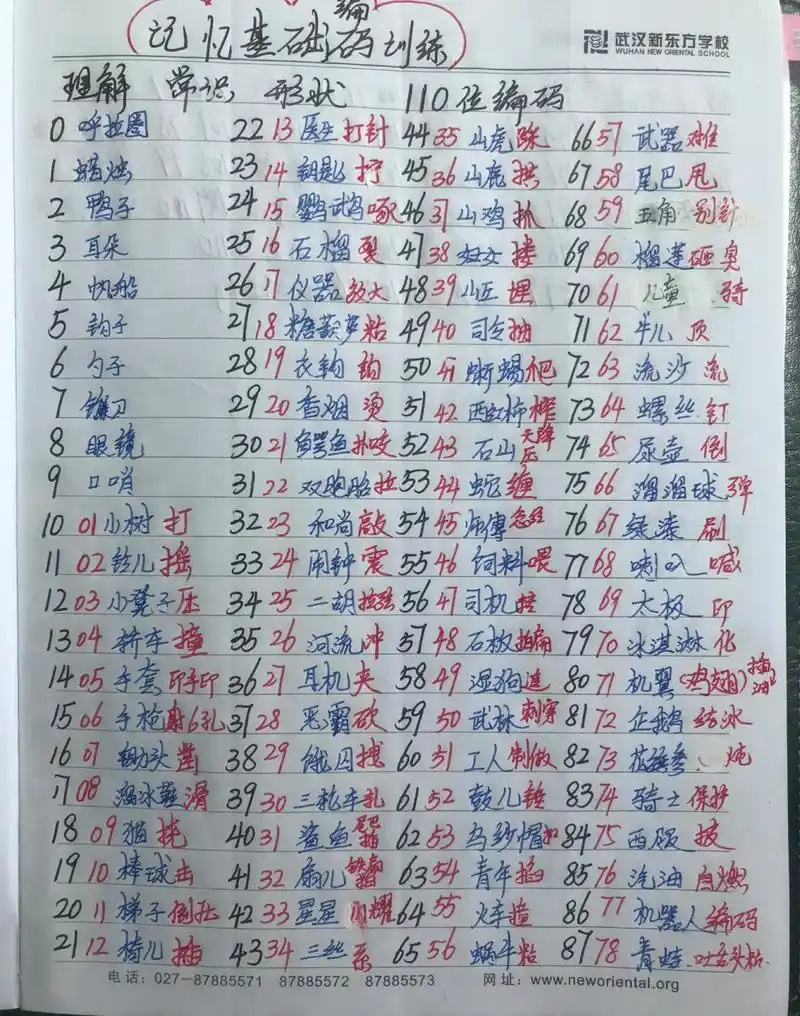 记忆基础编码训练
武汉新东方学校
WUHAN NEW ORIENTAL SCHOOL
理解 常识 形状 110位编码
0 呼拉圈 22 13 医生打针 44 35 山虎 66 57 武器
1 蜡烛 23 14 钥匙拧 45 36 山鹿 67 58 尾巴甩
2 鸭子 24 15 鹦鹉啄 46 37 山鸡抓 68 59 五角 别针
3 耳朵 25 16 石榴裂 47 38 妇女搂 69 60 榴莲砸臭
4 帆船 26 17 仪器放大 48 39 山丘埋 70 61 儿童 骑
5 钩子 27 18 糖葫芦粘 49 40 司令抽 71 62 牛儿顶
6 勺子 28 19 衣钩钩 50 41 蜥蜴爬 72 63 流沙流
7 镰刀 29 20 香烟烫 51 42 西红柿榨 73 64 螺丝钉
8 眼镜 30 21 鳄鱼扑咬 52 43 石山天降压 74 65 尿壶倒
9 口哨 31 22 双胞胎拉 53 44 蛇缠 75 66 溜溜球弹
10 01 小树打 32 23 和尚敲 54 45 师傅念经 76 67 绿漆刷
11 02 铃儿摇 33 24 闹钟震 55 46 饲料喂 77 68 喇叭喊
12 03 小凳子压 34 25 二胡拉弦 56 47 司机 78 69 太极印
13 04 轿车撞 35 26 河流冲 57 48 石板拍扁 79 70 冰淇淋化
14 05 手套印手印 36 27 耳机夹 58 49 湿狗 80 71 机翼(鸡翅)
15 06 手枪射6孔 37 28 恶霸砍 59 50 武林刺穿 81 72 企鹅结冰
16 07 锄头凿 38 29 饿囚拽 60 51 工人制做 82 73 花旗参炖
17 08 溜冰鞋滑 39 30 三轮车轧 61 52 鼓儿锤 83 74 骑士保护
18 09 猫 40 31 鲨鱼尾巴拍 62 53 乌纱帽扣 84 75 西服披
19 10 棒球击 41 32 扇儿 63 54 青年掐 85 76 汽油自燃
20 11 梯子 42 33 星星闪耀 64 55 火车撞 86 77 机器人编码
21 12 椅儿插 43 34 三丝系 65 56 蜗牛粘 87 78 青蛙吐舌头粘
电话:027-87885571 87885572 87885573 网址:www.neworiental.org